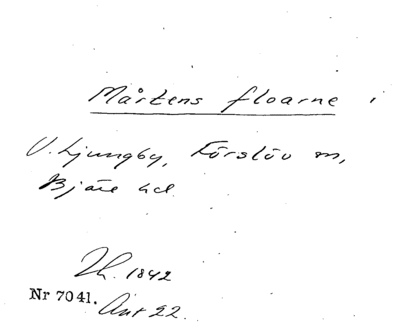 Mårtens floarne,
V. Ljungby, Förslöv sn,
Bjäre hd.
Lh. 1842
Nr 7041. Änt 22.